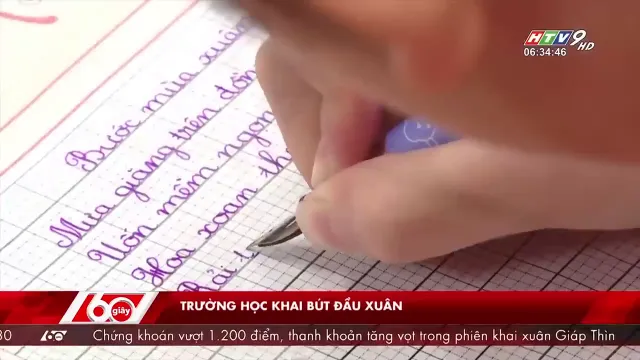 HTV9 HD
06:34:46
Bước mùa xuân
Mưa giăng trên đồn
Uốn mềm ngọn
Hoa xoan th
Rải
60 giây
TRƯỜNG HỌC KHAI BÚT ĐẦU XUÂN
30 60s Chứng khoán vượt 1.200 điểm, thanh khoản tăng vọt trong phiên khai xuân Giáp Thìn